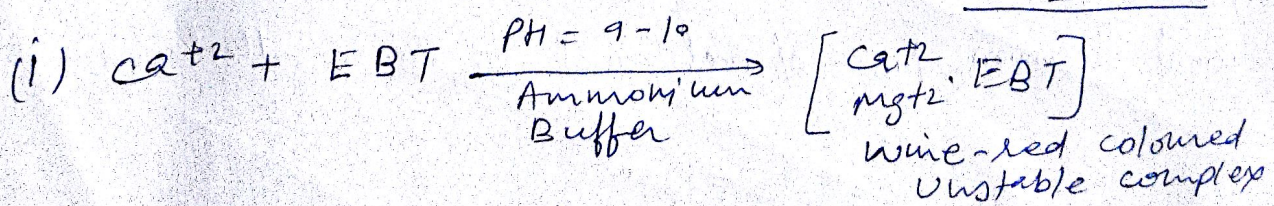 (i) Ca+2 + EBT PH = 9-10 Ammonium Buffer → [Ca+2 Mg+2 . EBT]
wine-red coloured
Unstable complex